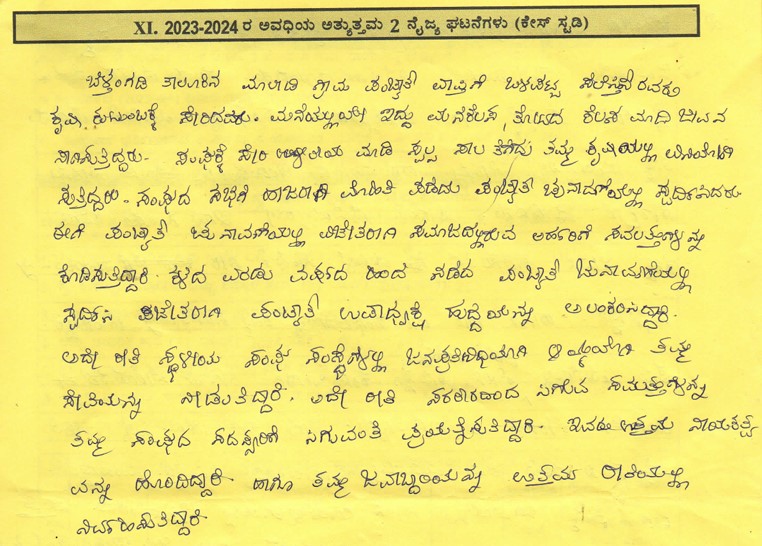 XI. 2023-2024 ರ ಅವಧಿಯ ಅತ್ಯುತ್ತಮ 2 ನೈಜ್ಯ ಘಟನೆಗಳು (ಕೇಸ್ ಸ್ಟಡಿ)
ಬೆಳ್ತಂಗಡಿ ತಾಲೂಕಿನ ಮಾಲಾಡಿ ಗ್ರಾಮ ಪಂಚ್ಯಾತಿ ವ್ಯಾಪ್ತಿಗೆ ಒಳಪಟ್ಟ ಸೆಲೆಸ್ತಿನ್ ರವರು
ಕೃಷಿ ಕುಟುಂಬಕ್ಕೆ ಸೇರಿದವರು. ಮನೆಯಲ್ಲಿಯೇ ಇದ್ದು ಮನೆಕೆಲಸ, ತೋಟದ ಕೆಲಸ ಮಾಡಿ ಜೀವನ
ಸಾಗಿಸುತ್ತಿದ್ದರು. ಸಂಘಕ್ಕೆ ಸೇರಿ ಉಳಿತಾಯ ಮಾಡಿ ಸ್ವಲ್ಪ ಸಾಲ ತೆಗೆದು ತಮ್ಮ ಕೃಷಿಯಲ್ಲಿ ವಿನಿಯೋಗಿ
ಸುತ್ತಿದ್ದರು. ಸಂಘದ ಸಭೆಗೆ ಹಾಜರಾಗಿ ಮಾಹಿತಿ ಪಡೆದು ಪಂಚ್ಯಾತಿ ಚುನಾವಣೆಯಲ್ಲಿ ಸ್ಪರ್ದಿಸಿದರು
ಈಗ ಪಂಚ್ಯಾತಿ ಚುನಾವಣೆಯಲ್ಲಿ ವಿಜೇತರಾಗಿ ಸಮಾಜದಲ್ಲಿರುವ ಅರ್ಹರಿಗೆ ಸವಲತ್ತುಗಳನ್ನು
ಕೊಡಿಸುತ್ತಿದ್ದಾರೆ. ಕಳೆದ ಎರಡು ವರ್ಷದ ಹಿಂದೆ ನಡೆದ ಪಂಚ್ಯಾತಿ ಚುನಾವಣೆಯಲ್ಲಿ
ಸ್ಪರ್ದಿಸಿ ವಿಜೇತರಾಗಿ ಪಂಚ್ಯಾತಿ ಉಪಾಧ್ಯಕ್ಷೆ ಹುದ್ದೆಯನ್ನು ಅಲಂಕರಿಸಿದ್ದಾರೆ.
ಅದೇ ರೀತಿ ಸ್ಥಳೀಯ ಸಂಘ ಸಂಸ್ಥೆಗಳಲ್ಲಿ ಜನಪ್ರತಿನಿಧಿಯಾಗಿ ಆಯ್ಕೆಯಾಗಿ ತಮ್ಮ
ಸೇವೆಯನ್ನು ನೀಡುತಿದ್ದಾರೆ. ಅದೇ ರೀತಿ ಸರಕಾರದಿಂದ ಸಿಗುವ ಸವಲತ್ತುಗಳನ್ನು
ತಮ್ಮ ಸಂಘದ ಸದಸ್ಯರಿಗೆ ಸಿಗುವಂತೆ ಪ್ರಯತ್ನಿಸುತಿದ್ದಾರೆ. ಇವರು ಉತ್ತಮ ನಾಯಕತ್ವ
ವನ್ನು ಹೊಂದಿದ್ದಾರೆ ಹಾಗೂ ತಮ್ಮ ಜವಾಬ್ದಾರಿಯನ್ನು ಉತ್ತಮ ರೀತಿಯಲ್ಲಿ
ನಿರ್ವಹಿಸುತಿದ್ದಾರೆ